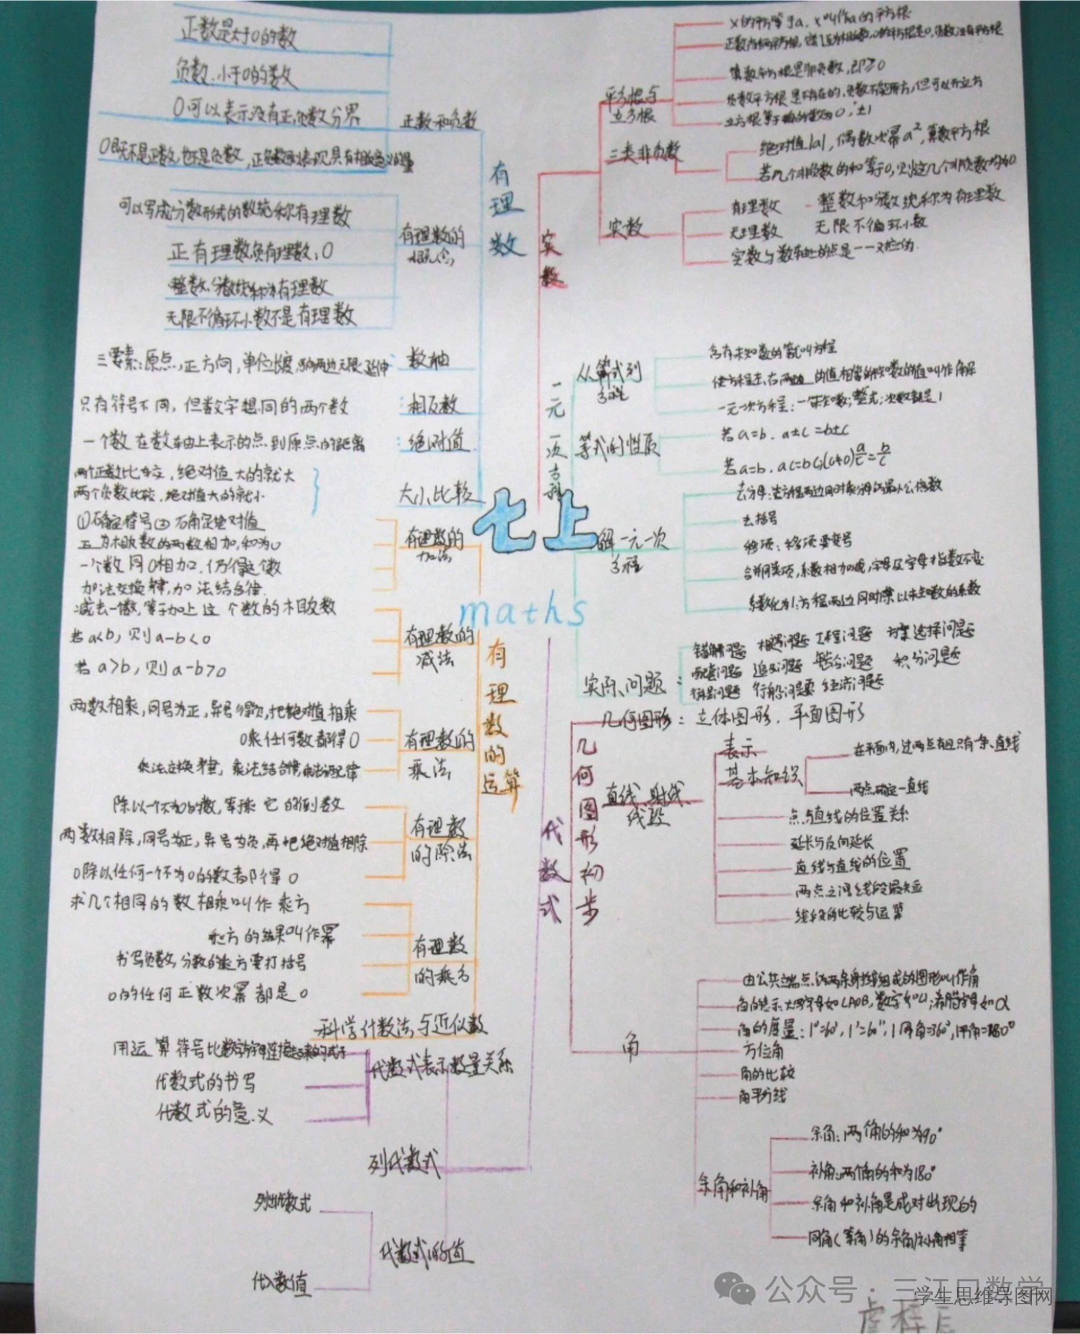 正数是大于0的数
负数、小于0的数
0可以表示没有正负数分界
正数和负数
有理数
可以写成分数形式的数统称有理数
正有理数负有理数，0
整数、分数统称为有理数
无限不循环小数不是有理数
有理数的概念
三要素：原点，正方向，单位长度
数轴
只有符号不同，但数字想同的两个数
相反数
一个数在数轴上表示的点到原点的距离
绝对值
两个正数比较，绝对值大的就大
两个负数比较，绝对值大的就小
大小比较
七上
maths
有理数的运算
①确定符号②确定绝对值
互为相反数的两数相加，和为0
一个数同0相加，仍得这个数
加法交换律，加法结合律
有理数的加法
减去一个数，等于加上这个数的相反数
若a<b，则a-b<0
若a>b，则a-b>0
有理数的减法
两数相乘，同号为正，异号为负，把绝对值相乘
0乘任何数都得0
乘法交换律，乘法结合律
有理数的乘法
除以一个不为0的数，等乘它的倒数
两数相除，同号为正，异号为负，再把绝对值相除
0除以任何一个不为0的数都得0
有理数的除法
求几个相同的数相乘叫作乘方
乘方的结果叫作幂
书写负数，分数的乘方要打括号
0的任何正数次幂都是0
有理数的乘方
科学计数法与近似数
代数式
代数式表示数量关系
代数式的书写
代数式的意义
列代数式
代数式的值
列代数式
代入数值
实数
平方根与立方根
x的平方等于a，x叫作a的平方根
算数平方根是非负数，即≥0
立方根等于本身的数为0，±1
三类非负数
绝对值|a|，偶数次幂a²，算数平方根
若几个非负数的和等于0，则这几个非负数均为0
实数
有理数
整数和分数统称为有理数
无理数
无限不循环小数
实数与数轴上的点是一一对应的
一元一次方程
从算式到方程
含有未知数的等式叫方程
等式的性质
若a=b，a±c=b±c
若a=b，ac=bc，(c≠0)a/c=b/c
解一元一次方程
去括号
移项：移项要变号
合并同类项，系数相加减，字母及字母指数不变
实际问题：
相遇问题 工程问题 方案选择问题
配套问题 追及问题 积分问题
行船问题 经济问题
几何图形初步
几何图形：立体图形，平面图形
直线、射线、线段
表示
基本知识
在平面内，过两点有且只有一条直线
两点确定一直线
点与直线的位置关系
延长与反向延长
直线与直线的位置
两点之间线段最短
线段的比较与运算
角
由公共端点的两条射线组成的图形叫作角
角的度量：1°=60′，1′=60″，1周角=360°，1平角=180°
方位角
角的比较
角平分线
余角和补角
余角：两角的和为90°
补角：两角的和为180°
余角和补角是成对出现的
同角(等角)的余角/补角相等
公众号·三江口数学
学生思维导图网